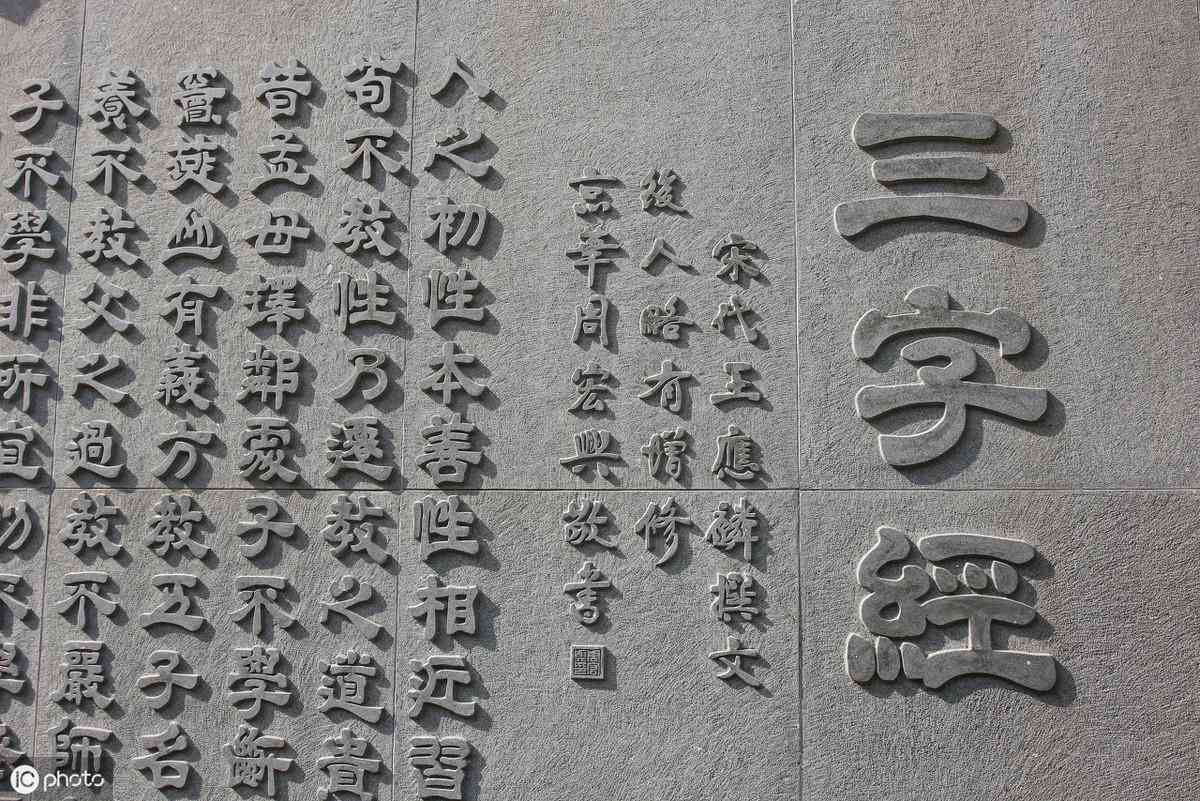 三字經
宋代王應磷撰文
後人略有增修
京華周宏興敬書
人之初性本善性相近習
苟不教性乃遷教之道貴
昔孟母擇鄰處子不學斷
竇燕山有義方教五子名
養不教父之過教不嚴師
子不學非所宜幼不學
IC photo